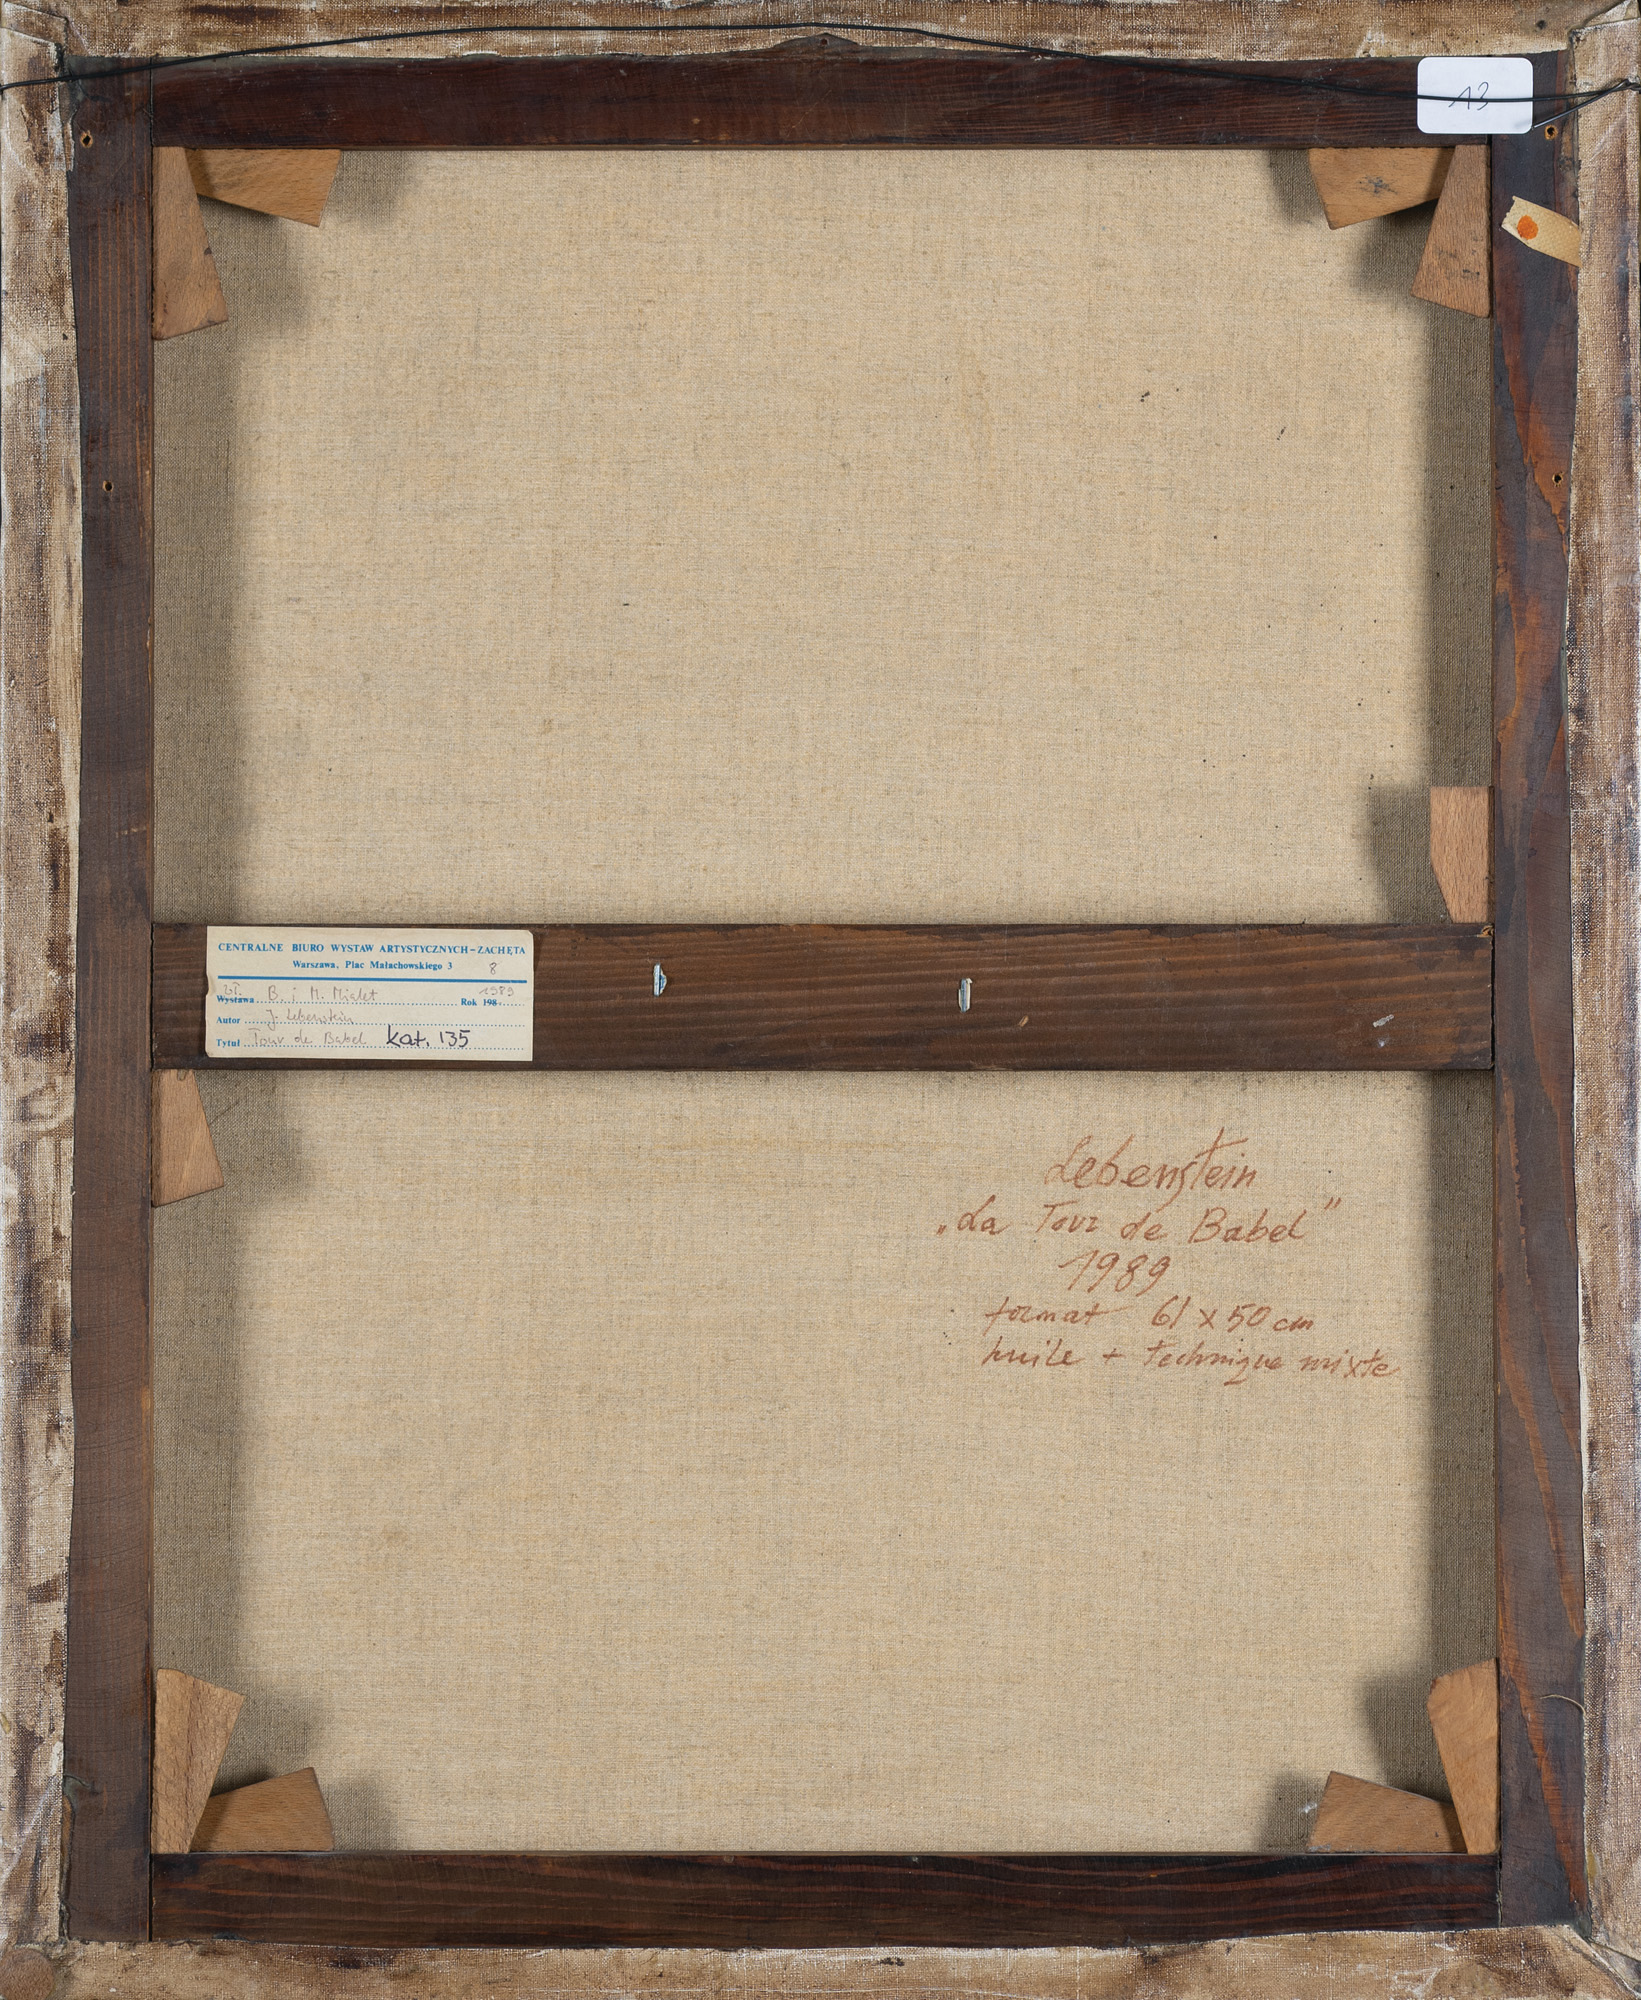 13
CENTRALNE BIURO WYSTAW ARTYSTYCZNYCH–ZACHĘTA
Warszawa, Plac Małachowskiego 3
8
Wystawa B. i M. Mialet Rok 198 1989
Autor J. Lebenstein
Tytuł Tour de Babel kat. 135
Lebenstein
„La Tour de Babel”
1989
format 61 x 50 cm
huile + technique mixte